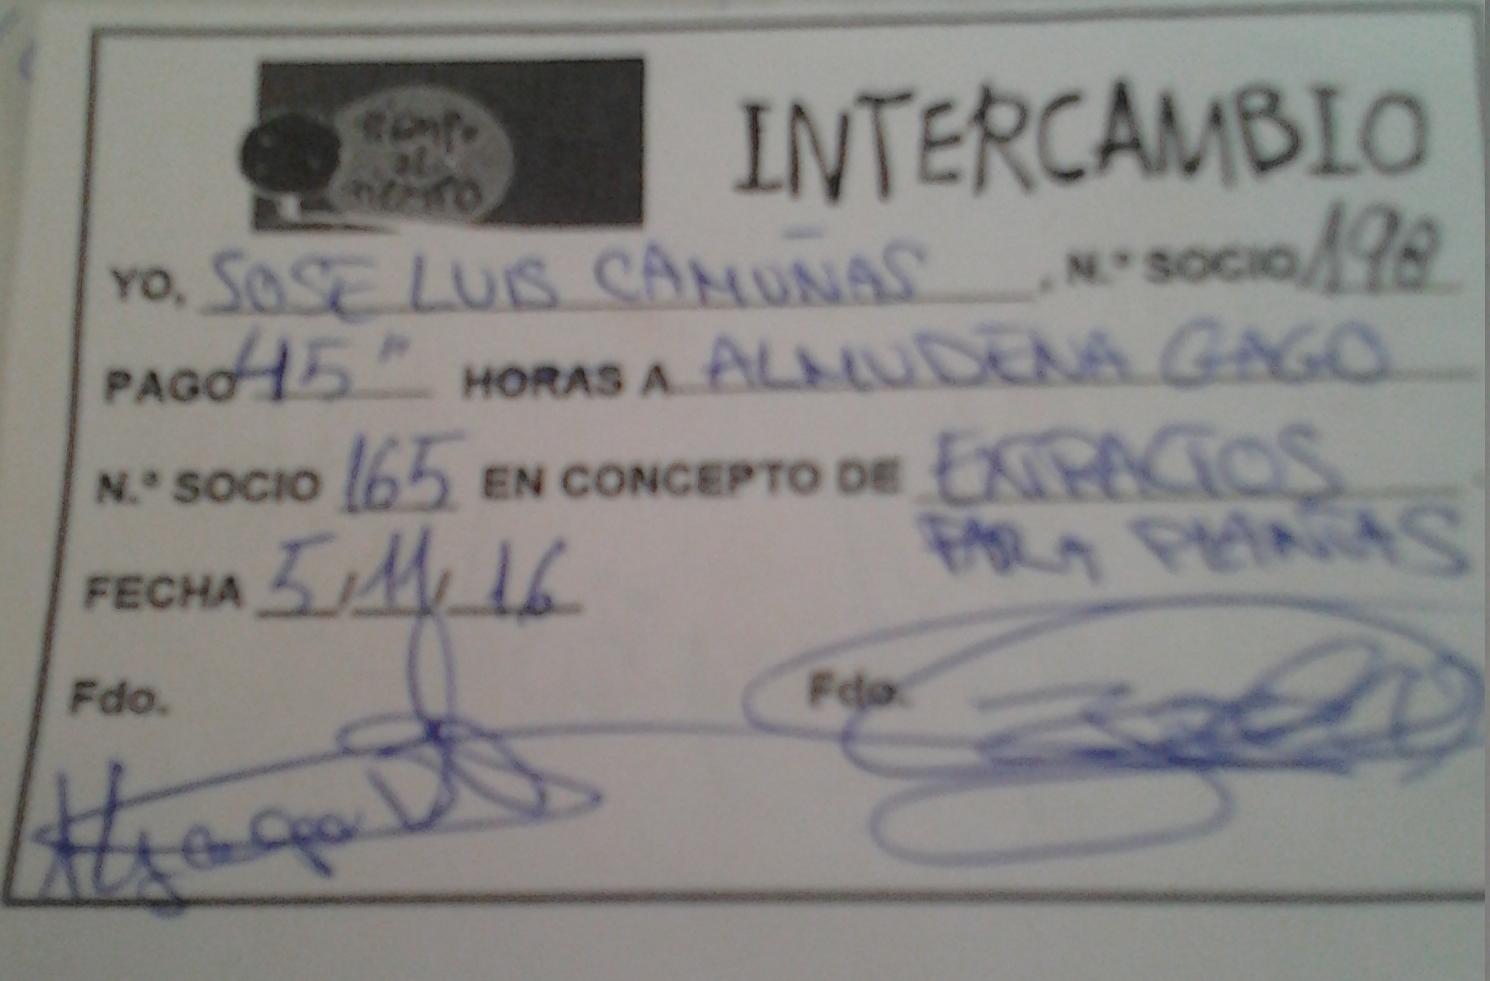 TIEMPO
AL
TIEMPO
INTERCAMBIO
YO, JOSE LUIS CAMUÑAS, N.º SOCIO 198
PAGO 45" HORAS A ALMUDENA GAGO
N.º SOCIO 165 EN CONCEPTO DE EXTRACTOS
PARA PLANTAS
FECHA 5/11/16
Fdo. Fdo.